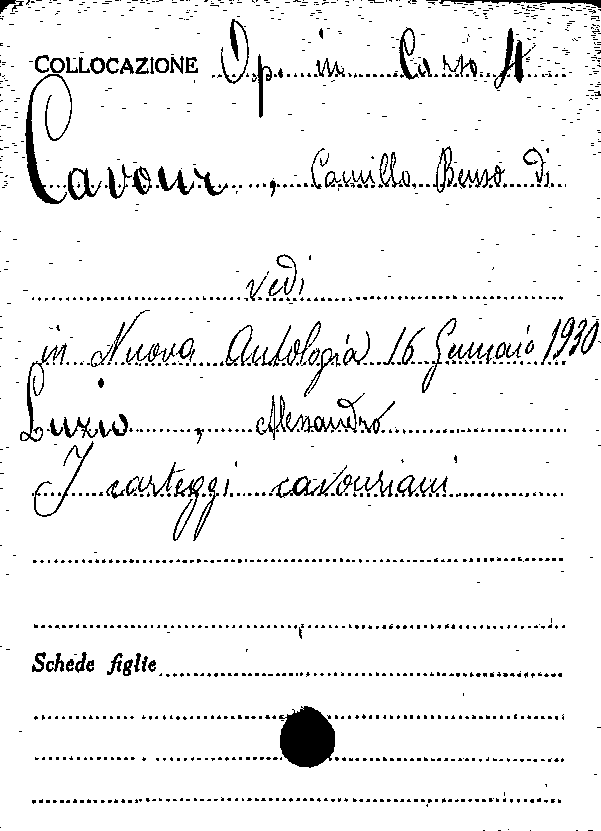 COLLOCAZIONE Op. in Corso 4
Cavour, Camillo Benso di
vedi
in Nuova Antologia 16 Gennaio 1930
Luzio, Alessandro
I carteggi cavouriani
Schede figlie